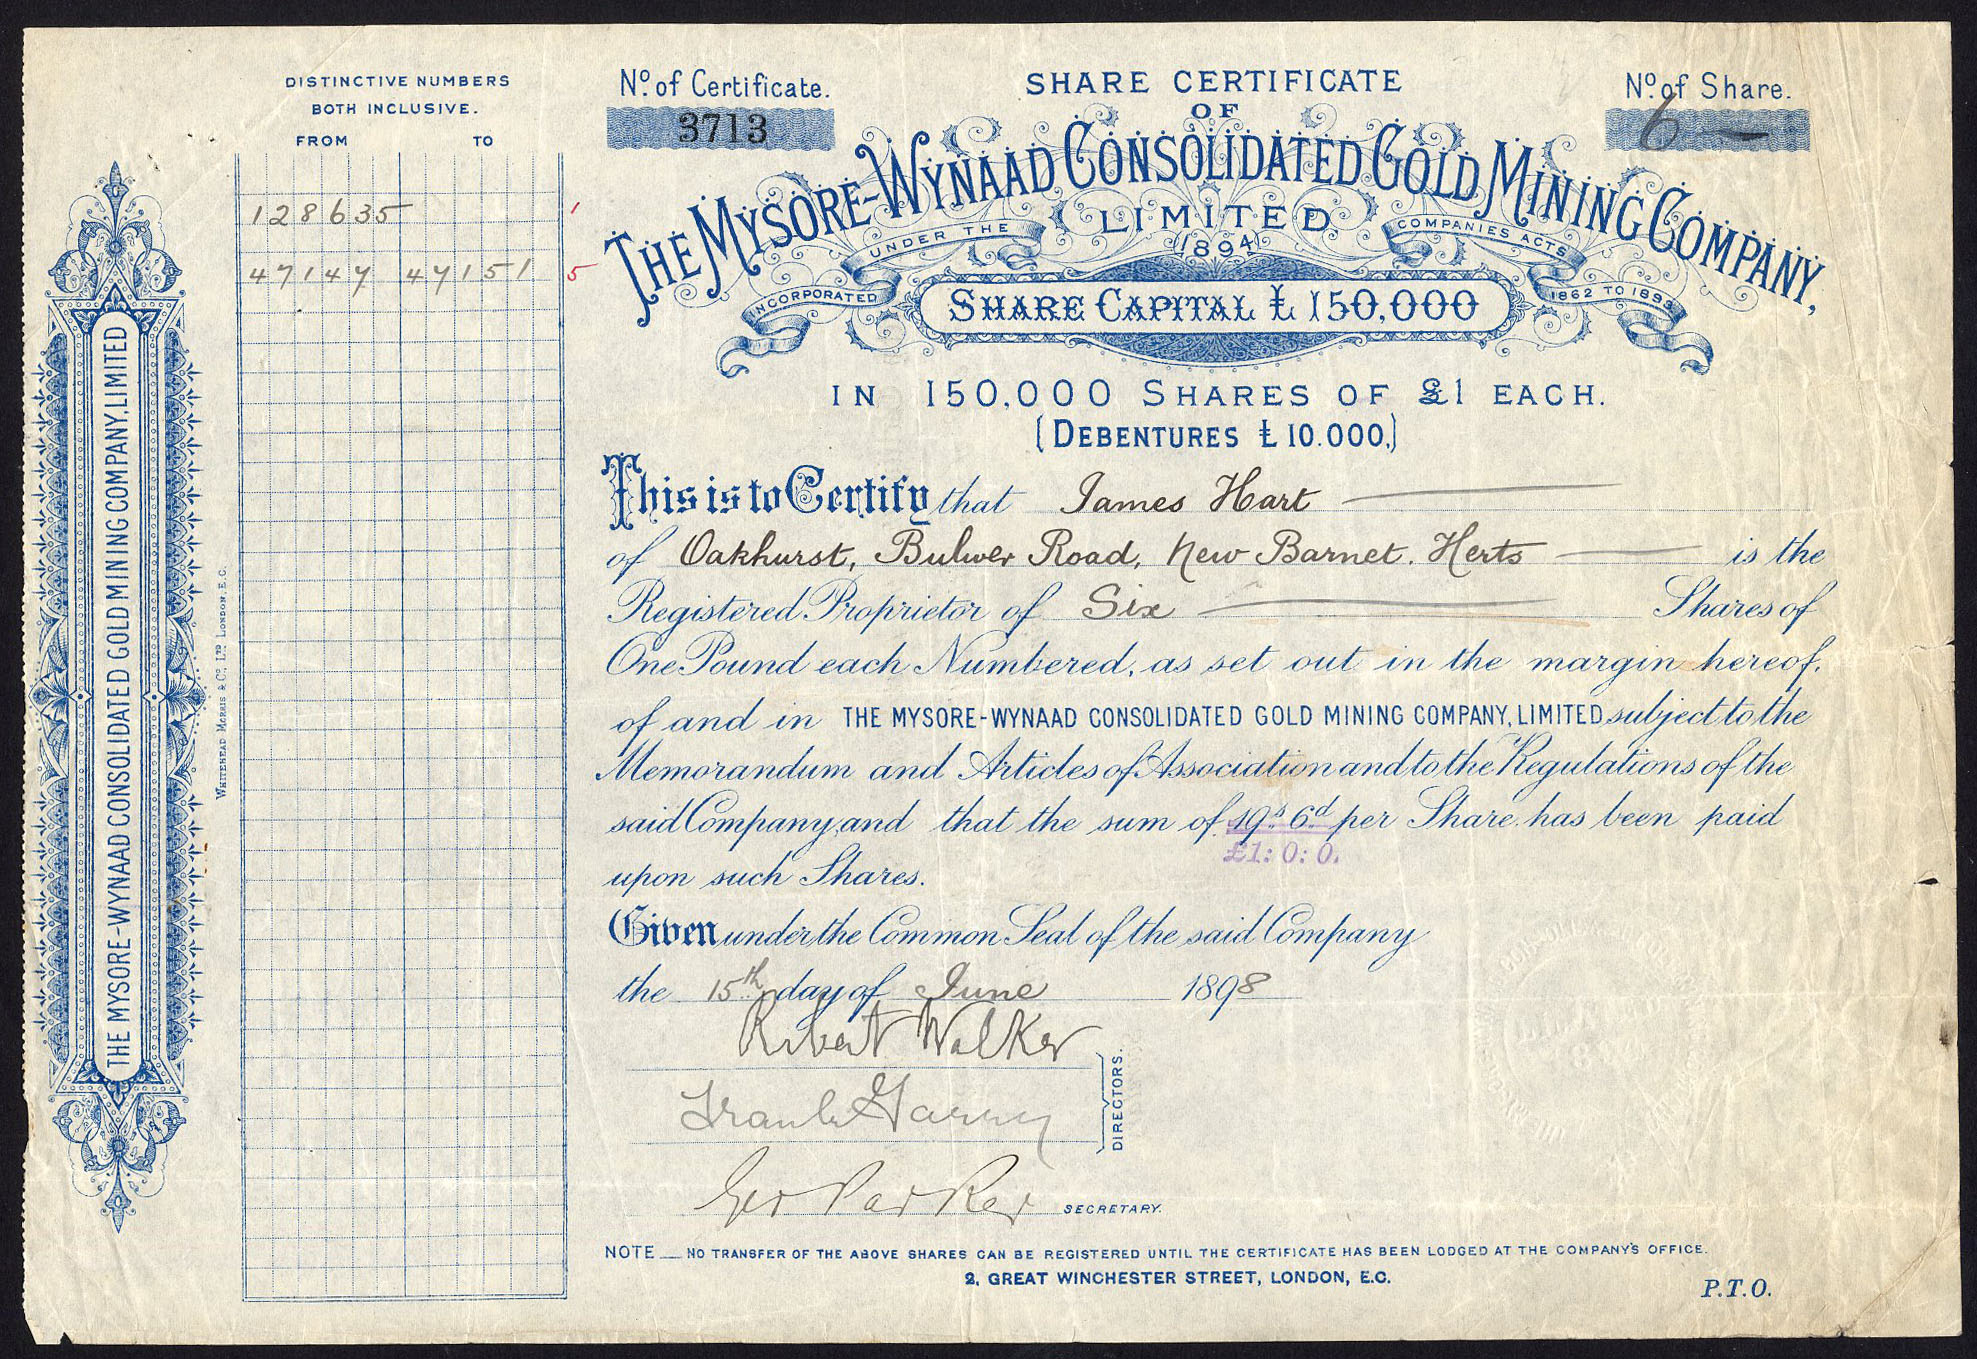 DISTINCTIVE NUMBERS
BOTH INCLUSIVE.
FROM TO
128635 1
47147 47151 5
THE MYSORE-WYNAAD CONSOLIDATED GOLD MINING COMPANY, LIMITED
WHITEHEAD MORRIS & Co., LTD LONDON, E.C.
No. of Certificate.
3713
SHARE CERTIFICATE
OF
No. of Share.
6
THE MYSORE-WYNAAD CONSOLIDATED GOLD MINING COMPANY,
LIMITED
1894
INCORPORATED UNDER THE COMPANIES ACTS 1862 TO 1893
SHARE CAPITAL £150,000
IN 150,000 SHARES OF £1 EACH.
(DEBENTURES £10.000.)
This is to Certify that James Hart
of Oakhurst, Bulwer Road, New Barnet. Herts is the
Registered Proprietor of Six Shares of
One Pound each Numbered, as set out in the margin hereof,
of and in THE MYSORE-WYNAAD CONSOLIDATED GOLD MINING COMPANY, LIMITED subject to the
Memorandum and Articles of Association and to the Regulations of the
said Company, and that the sum of 19s. 6d. per Share has been paid
£1: 0: 0.
upon such Shares.
Given under the Common Seal of the said Company
the 15th day of June 1898
Robert Walker
Frank
DIRECTORS.
Geo Parker SECRETARY.
NOTE — NO TRANSFER OF THE ABOVE SHARES CAN BE REGISTERED UNTIL THE CERTIFICATE HAS BEEN LODGED AT THE COMPANY'S OFFICE.
2, GREAT WINCHESTER STREET, LONDON, E.C.
P.T.O.